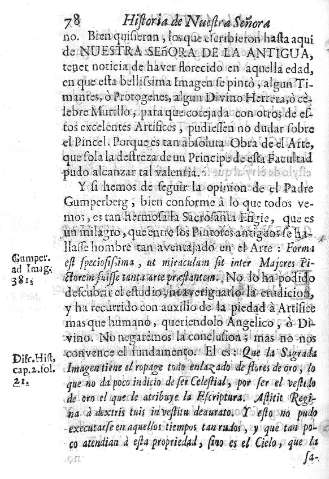 78 Historia de Nuestra Señora
no. Bien quisieran, los que escribieron hasta aqui
de NUESTRA SEñORA DE LA ANTIGUA,
tener noticia de haver florecido en aquella edad,
en que esta bellissima Imagen se pintò, algun Ti-
mantes, ò Protogenes, algun Divino Herrera, ò cè-
lebre Murillo, para que cotejada con otros de es-
tos excelentes Artifices, pudiessen no dudar sobre
el Pincel. Porque es tan absoluta Obra de el Arte,
que sola la destreza de un Principe de esta Facultad
pudo alcanzar tal valentia.
Y si hemos de seguir la opinion de el Padre
Gumperberg, bien conforme à lo que todos ve-
mos, es tan hermosa la Sacrosanta Efigie, que es
un milagro, que entre los Pintores antigos se ha-
llasse hombre tan aventajado en el Arte: Forma
est speciosissima, ut miraculum sit inter Majores Pi-
ctorem fuisse tanta arte præstantem. No lo ha podido
descubrir el estudio, ni averiguarlo la erudicion,
y ha recurrido con auxilio de la piedad à Artifice
mas que humano, queriendolo Angelico, ò Di-
vino. No negarèmos la conclusion; mas no nos
convence el fundamento. El es: Que la Sagrada
Imagen tiene el ropage todo enlazado de flores de oro, lo
que no da poco indicio de ser Celestial, por ser el vestido
de oro el que le atribuye la Escriptura. Astitit Regi-
na à dextris tuis in vestitu deaurato. Y esto no pudo
executarse en aquellos tiempos tan rudos, y que tan po-
co atendian à esta propriedad, sino es el Cielo, que la
sa-
Gumper.
ad Imag.
381.
Disc. Hist.
cap. 2. fol.
21.